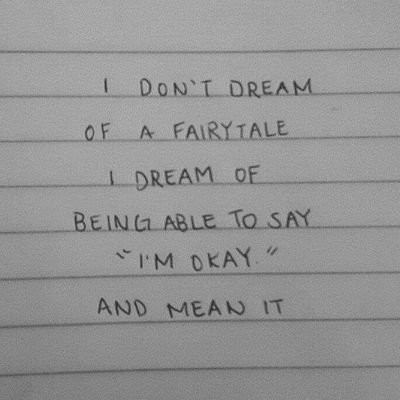 I DON'T DREAM
OF A FAIRYTALE
I DREAM OF
BEING ABLE TO SAY
"I'M OKAY."
AND MEAN IT